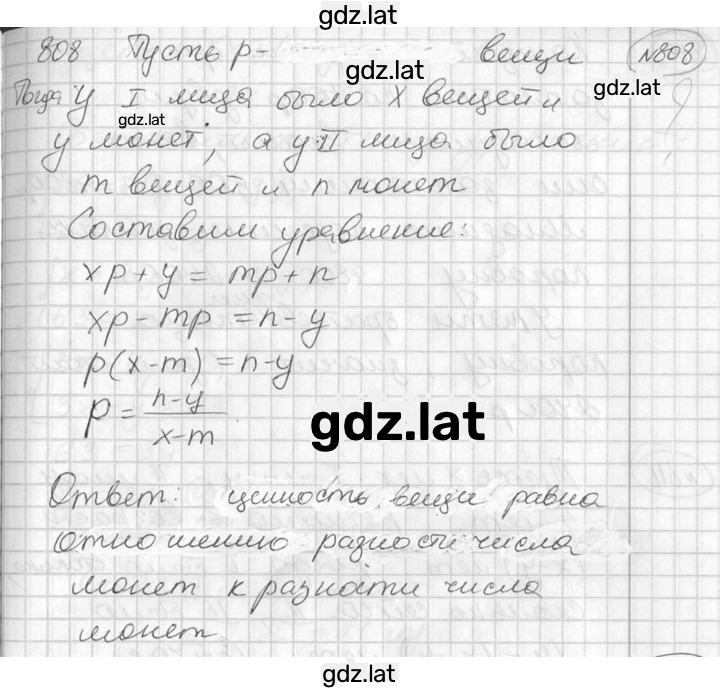 gdz.lat
808 Пусть p- вещи №808
gdz.lat
gdz.lat
Тогда у I лица было x вещей и
gdz.lat
y монет, а у II лица было
m вещей и n монет
Составим уравнение:
xp + y = mp + n
xp - mp = n - y
p(x-m) = n-y
p = n-y / x-m
gdz.lat
Ответ: ценность вещи равна
отношению разности числа
монет к разности числа
монет
gdz.lat